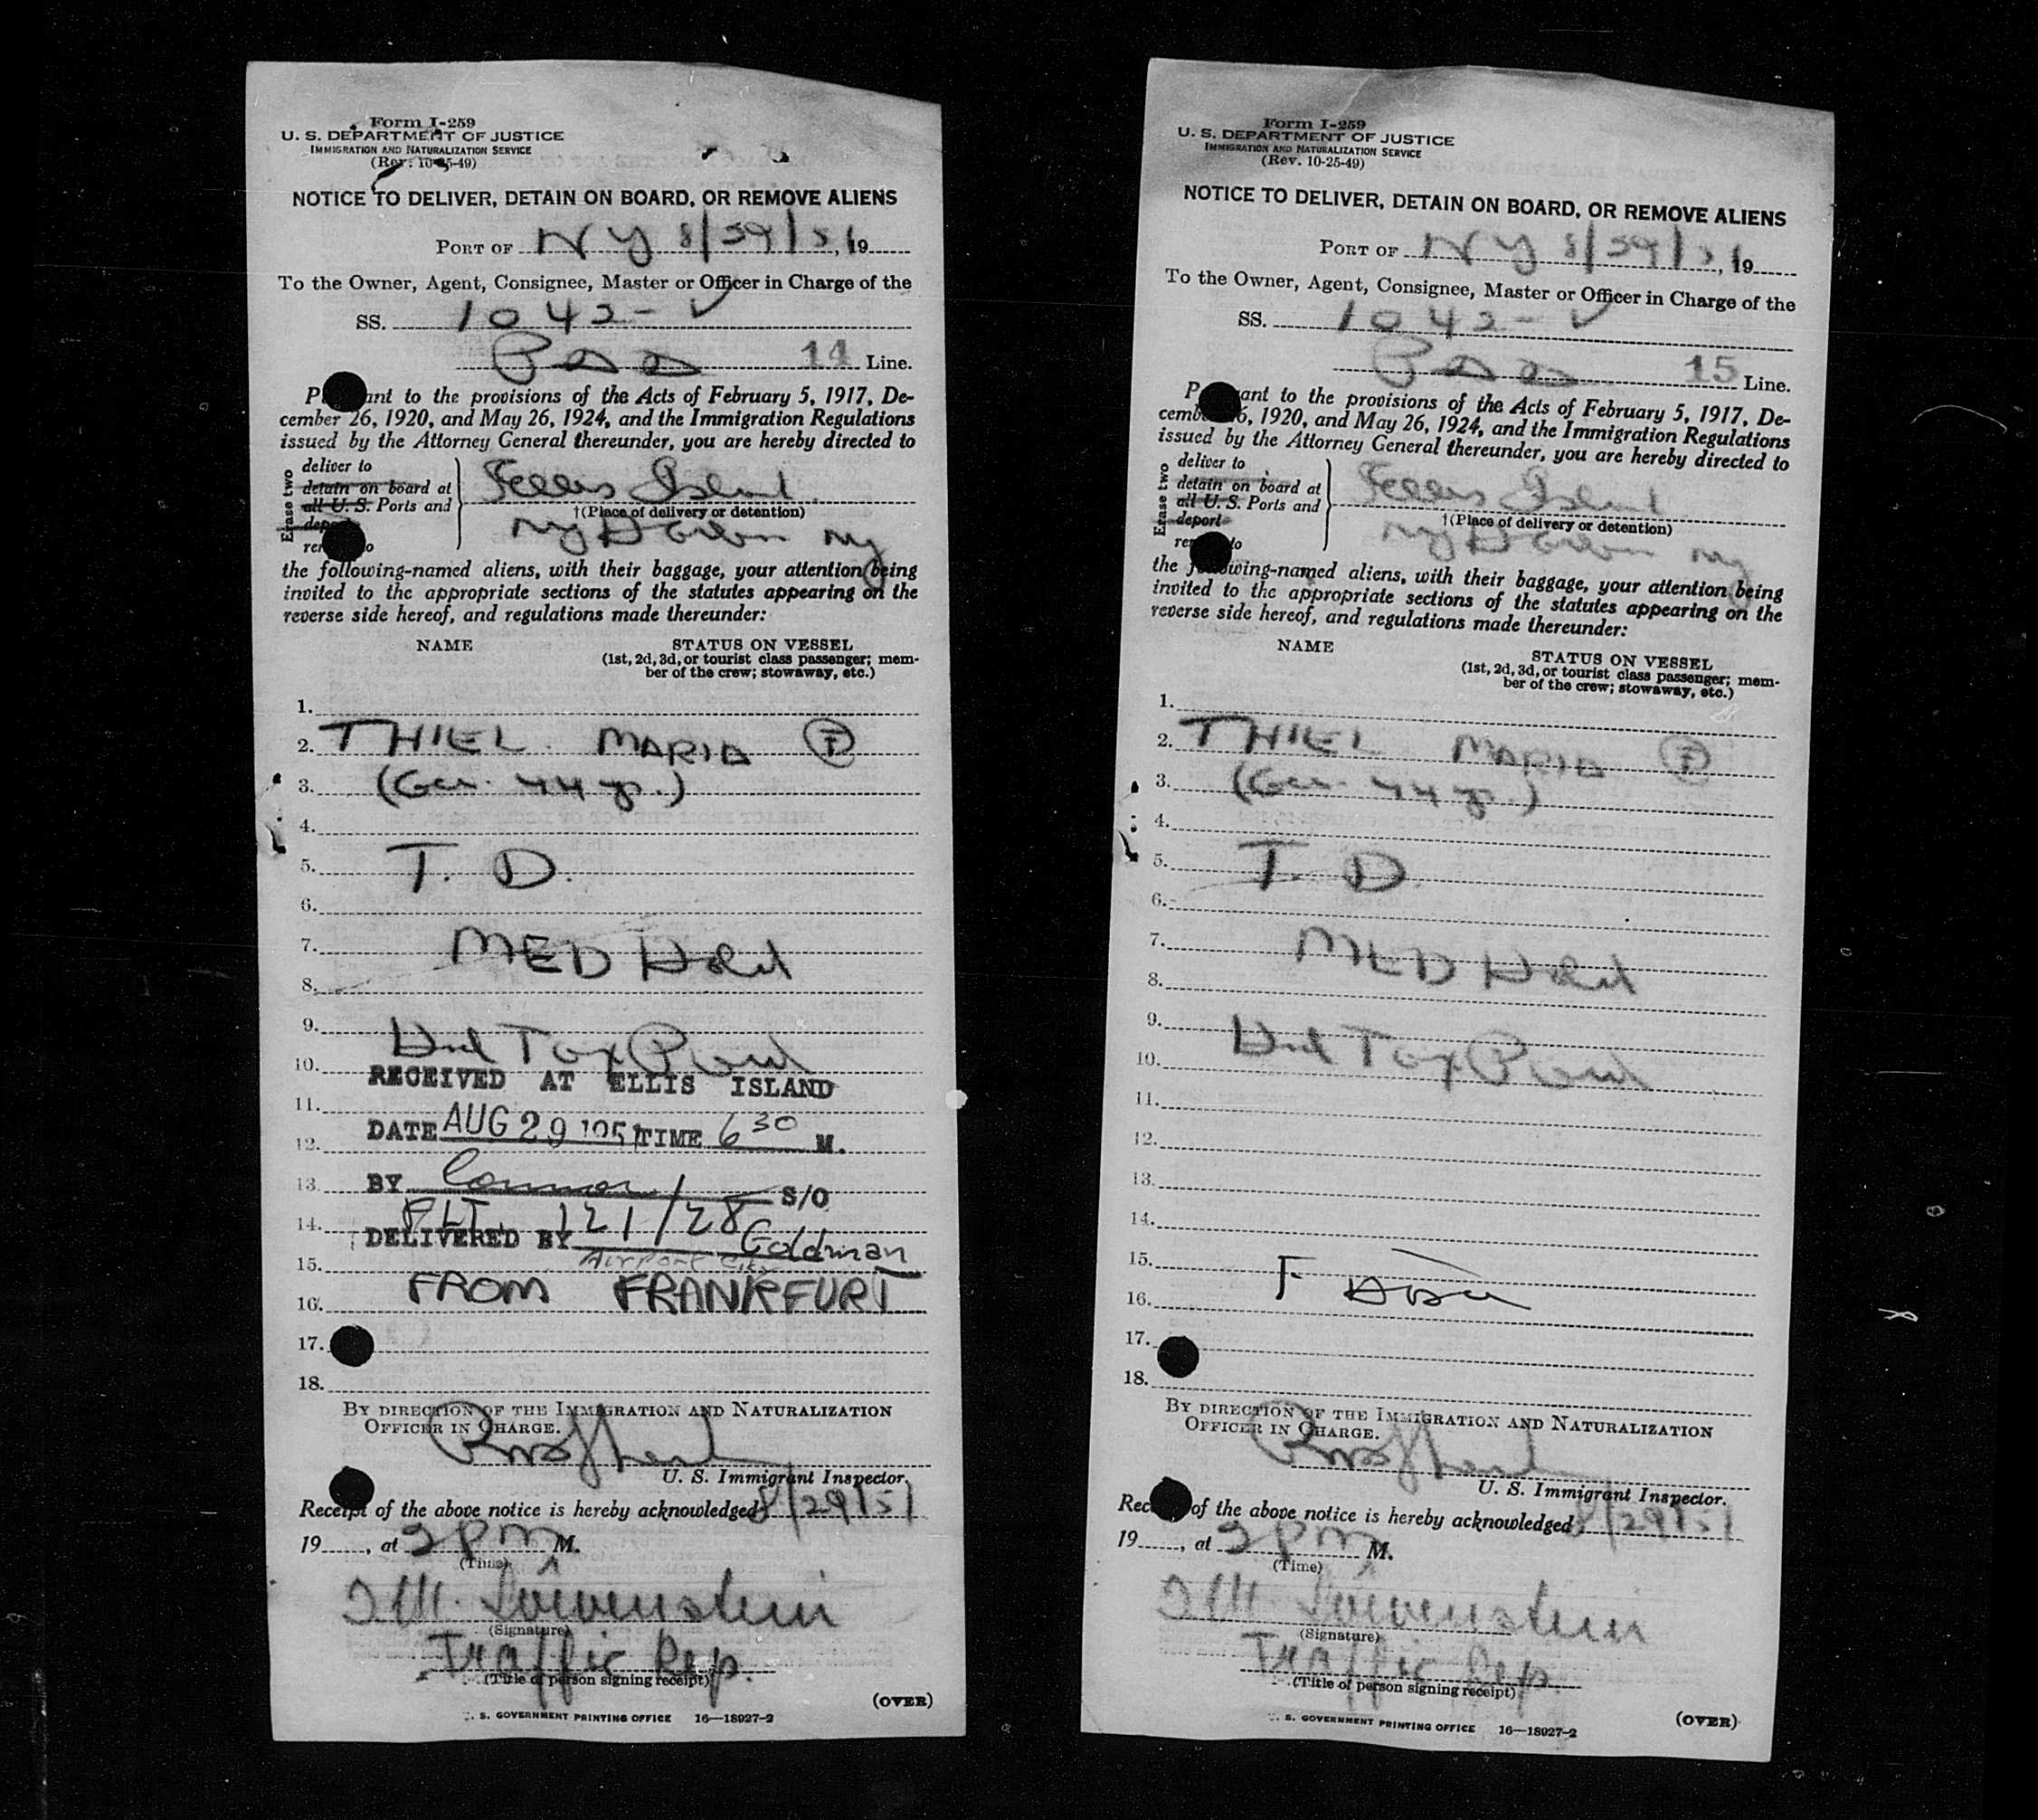 Form I-259
U. S. DEPARTMENT OF JUSTICE
IMMIGRATION AND NATURALIZATION SERVICE
(Rev. 10-25-49)
NOTICE TO DELIVER, DETAIN ON BOARD, OR REMOVE ALIENS
PORT OF NY 8/29/51, 19
To the Owner, Agent, Consignee, Master or Officer in Charge of the
SS. 1042-V
14 Line.
P ant to the provisions of the Acts of February 5, 1917, De-
cember 26, 1920, and May 26, 1924, and the Immigration Regulations
issued by the Attorney General thereunder, you are hereby directed to
Erase two
deliver to
detain on board at
all U. S. Ports and
deport
rem to
Ellis Island
†(Place of delivery or detention)
NY
the following-named aliens, with their baggage, your attention being
invited to the appropriate sections of the statutes appearing on the
reverse side hereof, and regulations made thereunder:
NAME
STATUS ON VESSEL
(1st, 2d, 3d, or tourist class passenger; mem-
ber of the crew; stowaway, etc.)
1.
2. THIEL MARIA F
3. (Ger. 44 yr.)
4.
5. T. D.
6.
7. MED Hold
8.
9.
10. Hd Tax Paid
RECEIVED AT ELLIS ISLAND
11.
DATE AUG 29 1951 TIME 6 30 M.
12.
13. BY Connor S/O
14. FLT. 121/28
DELIVERED BY Goldman
15. Airport City
16. FROM FRANKFURT
17.
18.
BY DIRECTION OF THE IMMIGRATION AND NATURALIZATION
OFFICER IN CHARGE.
U. S. Immigrant Inspector.
Receipt of the above notice is hereby acknowledged 8/29/51
19, at 2 PM M.
(Time)
Löwenstein
(Signature)
Traffic Rep.
(Title of person signing receipt)
(OVER)
U. S. GOVERNMENT PRINTING OFFICE 16—18927-2
Form I-259
U. S. DEPARTMENT OF JUSTICE
IMMIGRATION AND NATURALIZATION SERVICE
(Rev. 10-25-49)
NOTICE TO DELIVER, DETAIN ON BOARD, OR REMOVE ALIENS
PORT OF NY 8/29/51, 19
To the Owner, Agent, Consignee, Master or Officer in Charge of the
SS. 1042-V
15 Line.
P ant to the provisions of the Acts of February 5, 1917, De-
cemb 6, 1920, and May 26, 1924, and the Immigration Regulations
issued by the Attorney General thereunder, you are hereby directed to
Erase two
deliver to
detain on board at
all U. S. Ports and
deport
rem to
Ellis Island
†(Place of delivery or detention)
NY
the following-named aliens, with their baggage, your attention being
invited to the appropriate sections of the statutes appearing on the
reverse side hereof, and regulations made thereunder:
NAME
STATUS ON VESSEL
(1st, 2d, 3d, or tourist class passenger; mem-
ber of the crew; stowaway, etc.)
1.
2. THIEL MARIA F
3. (Ger. 44 yr.)
4.
5. T. D.
6.
7. MED Hold
8.
9.
10. Hd Tax Paid
11.
12.
13.
14.
15.
16.
17.
18.
BY DIRECTION OF THE IMMIGRATION AND NATURALIZATION
OFFICER IN CHARGE.
U. S. Immigrant Inspector.
Rec of the above notice is hereby acknowledged 8/29/51
19, at 2 PM M.
(Time)
Löwenstein
(Signature)
Traffic Rep.
(Title of person signing receipt)
(OVER)
U. S. GOVERNMENT PRINTING OFFICE 16—18927-2